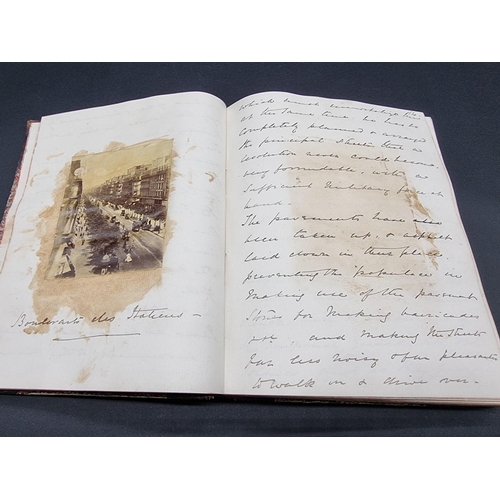 Boulevarts des Italiens -
which much
at the same time he has so
completely planned & arranged
the principal Streets that a
revolution never could become
very formidable, with a
Sufficient Military force at
hand.
The pavements have also
been taken up, & asphalt
laid down in their places
preventing the populace in
making use of the pavement
Stones for making barricades
&c, and making the Streets
far less noisy & far pleasanter
to walk in & drive over-